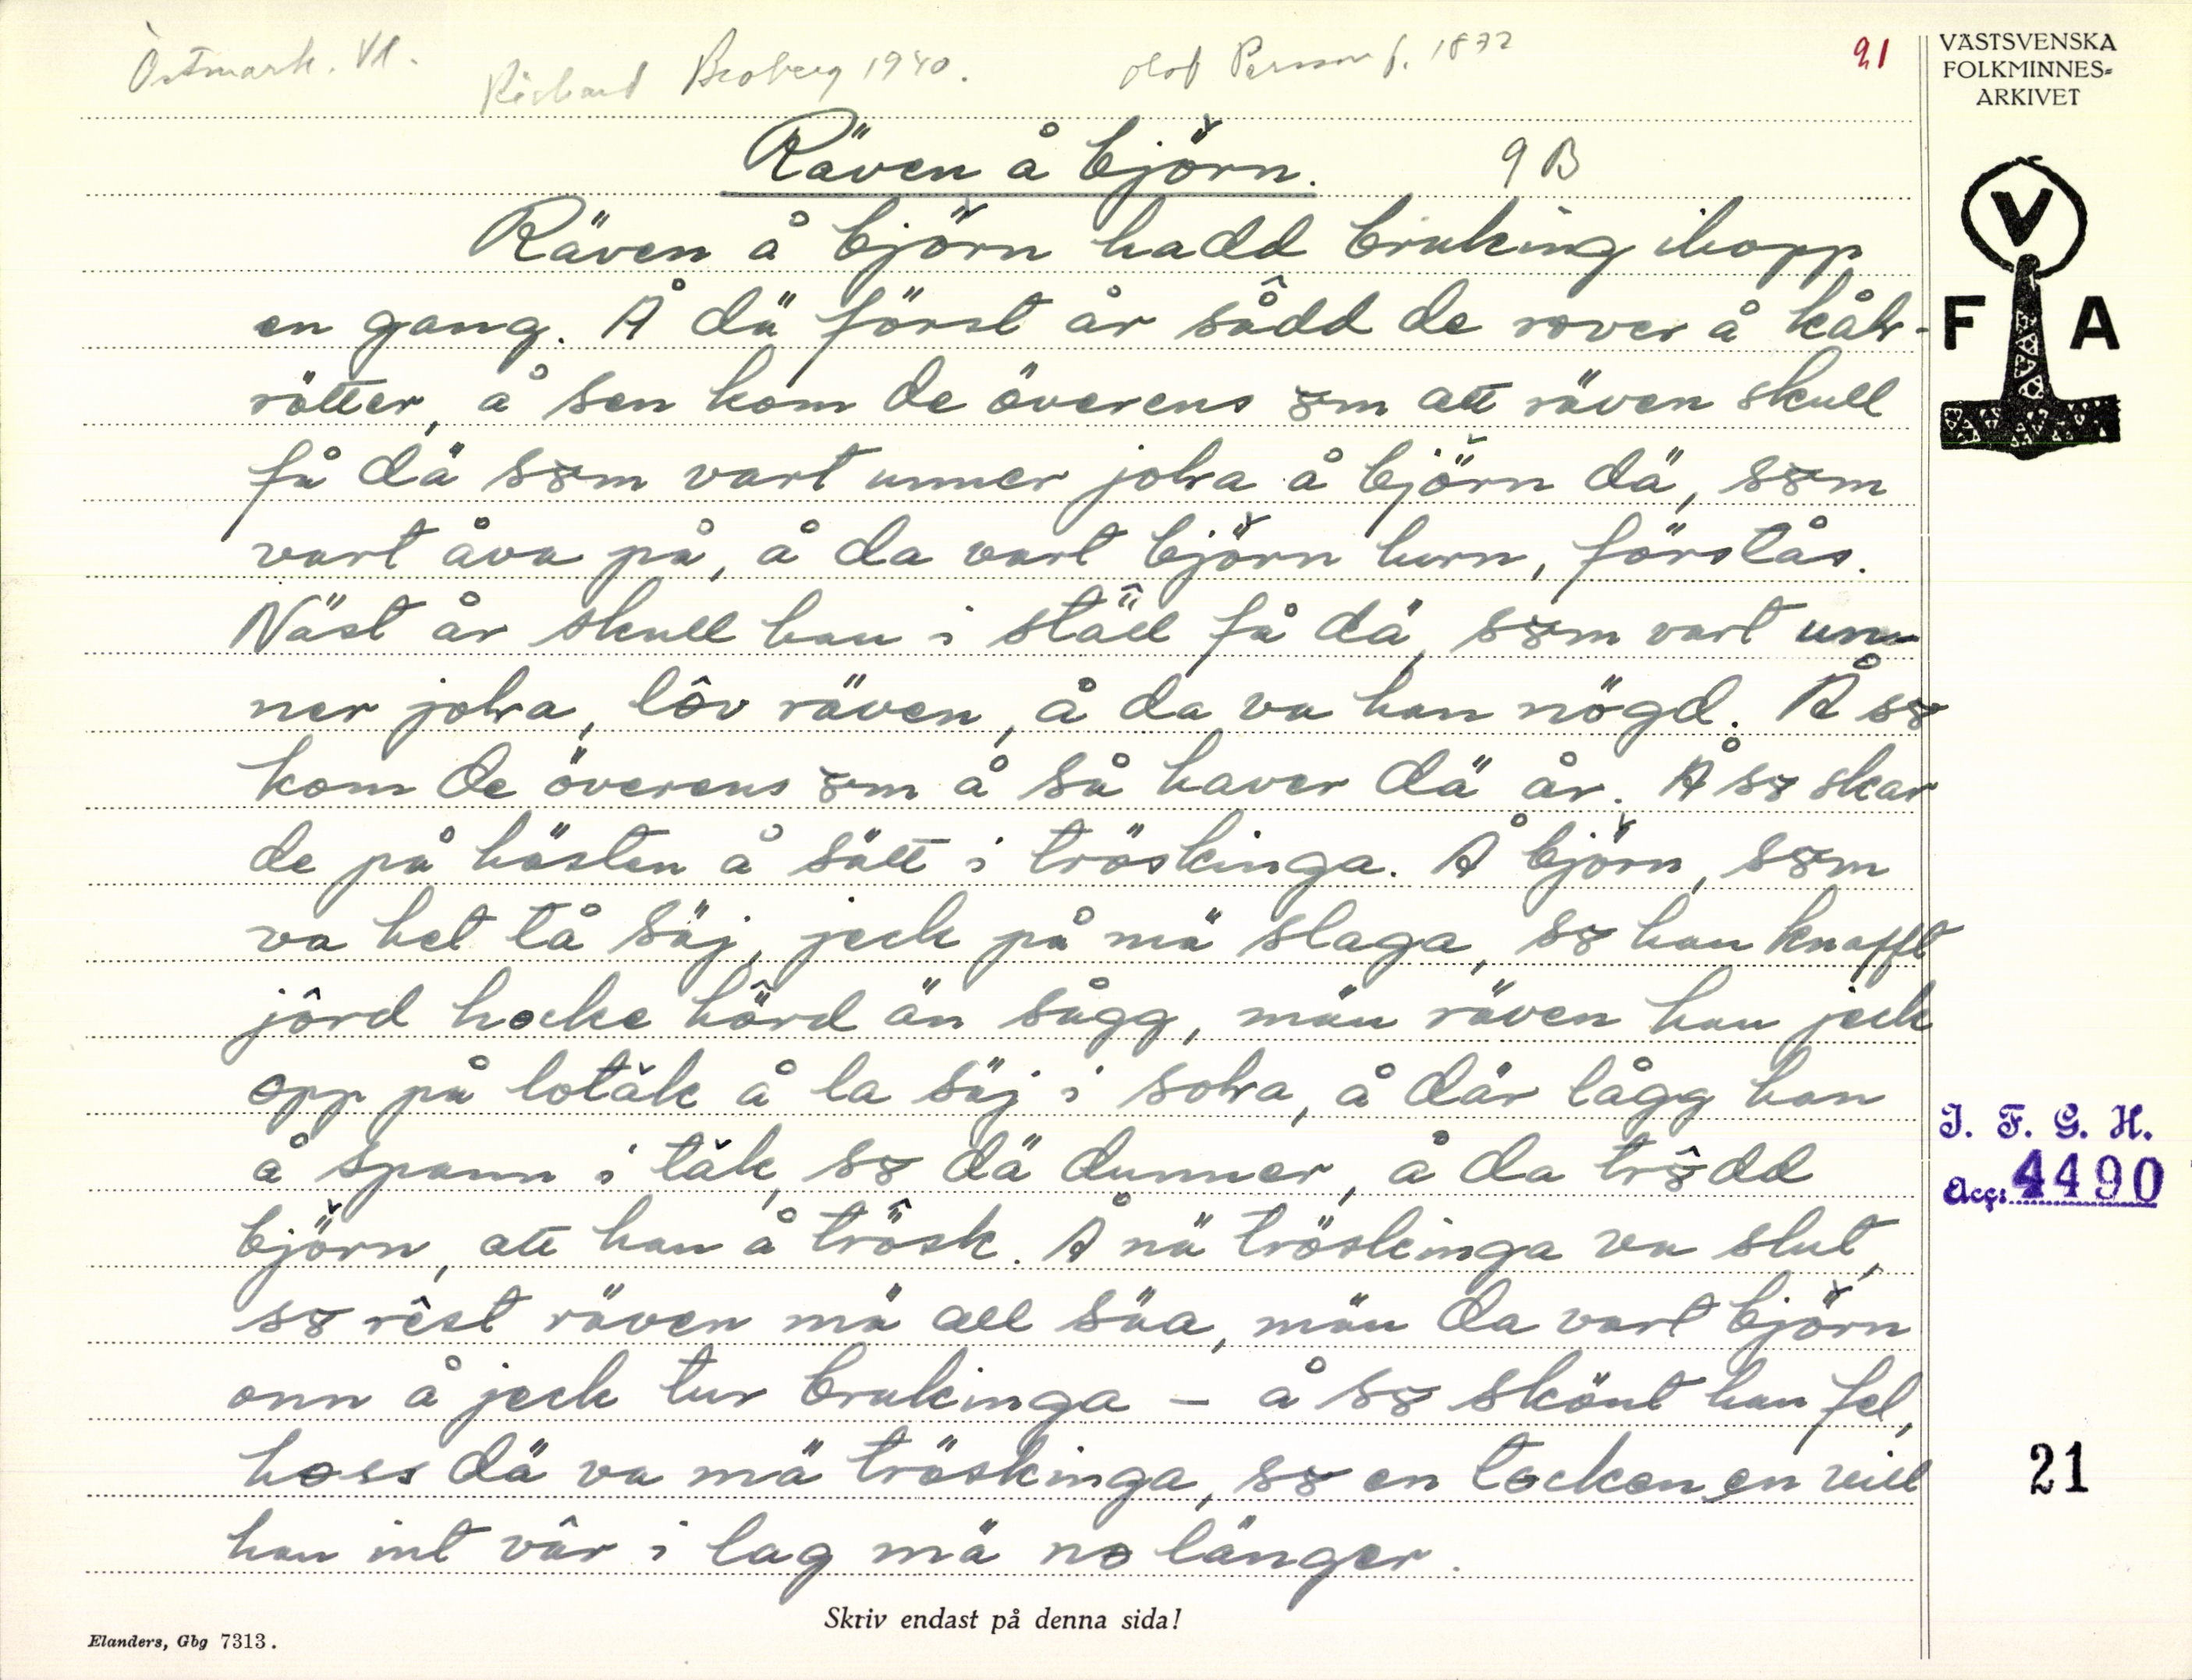 Östmark. Vl.
Richard Broberg 1940.
Olof Persson f. 1872
21
VÄSTSVENSKA
FOLKMINNES=
ARKIVET
Räven å björn.
9 B
Räven å björn hadd bruking ihopp
en gang. Å dä först år sådd de rover å kåls-
rötter, å sen kom de överens om att räven skull
få dä som vart unner jola å björn dä, som
vart åva på, å da vart björn lurn, förstås.
Näst år skull han i ställ få dä, som vart un-
ner jola, lôv räven, å da va han nögd. Å so
kom de överens om å så haver dä år. Å so skar
de på hösten å sätt i tröskinga. Å björn, som
va het tå säj, jeck på mä slaga, so han knafft
jôrd hocke hôrd än sågg, män räven han jeck
opp på lotäk å la säj i sola, å där lågg han
å spann i täk, so dä dunner, å da trôdd
björn, att han å trösk. Å nä tröskinga va slut,
so rêst räven mä all säa, män da vart björn
onn å jeck tur brukinga – å so skönt han fel,
hoss dä va mä tröskinga, so en tocken en vill
han int vâr i lag mä no länger.
V
F A
I. F. G. H.
Acc: 4490
21
Skriv endast på denna sida!
Elanders, Gbg 7313.